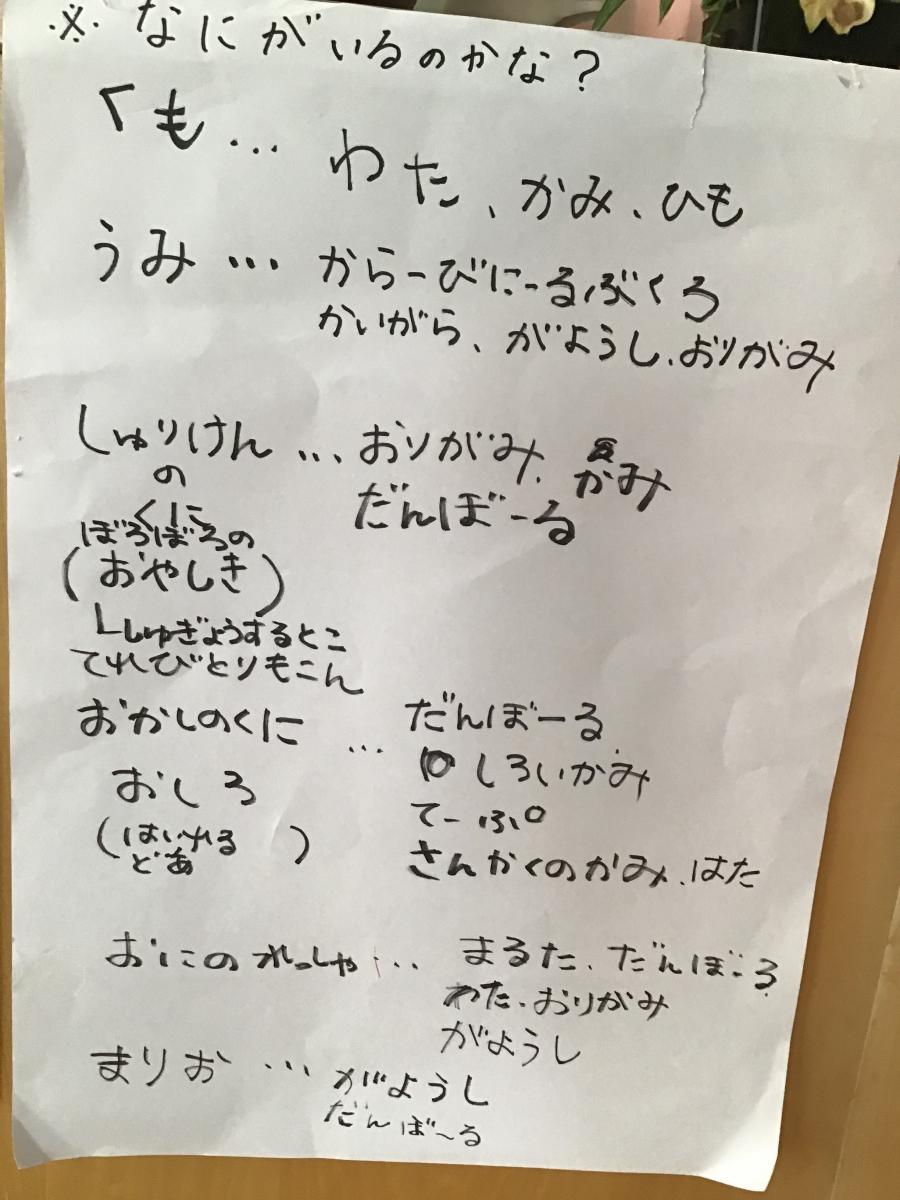 ※ なにがいるのかな？
くも… わた、かみ、ひも
うみ… からーびにーるぶくろ
かいがら、がようし、おりがみ
しゅりけん…おりがみ、かみ
の
くに
だんぼーる
ぼろぼろの
(おやしき)
└しゅぎょうするとこ
てれびとりもこん
おかしのくに … だんぼーる
しろいかみ
おしろ
てーぷ
(はいれる
どあ)
さんかくのかみ、はた
おにのれっしゃ… まるた、だんぼーる
わた、おりがみ
がようし
まりお… がようし
だんぼ〜る